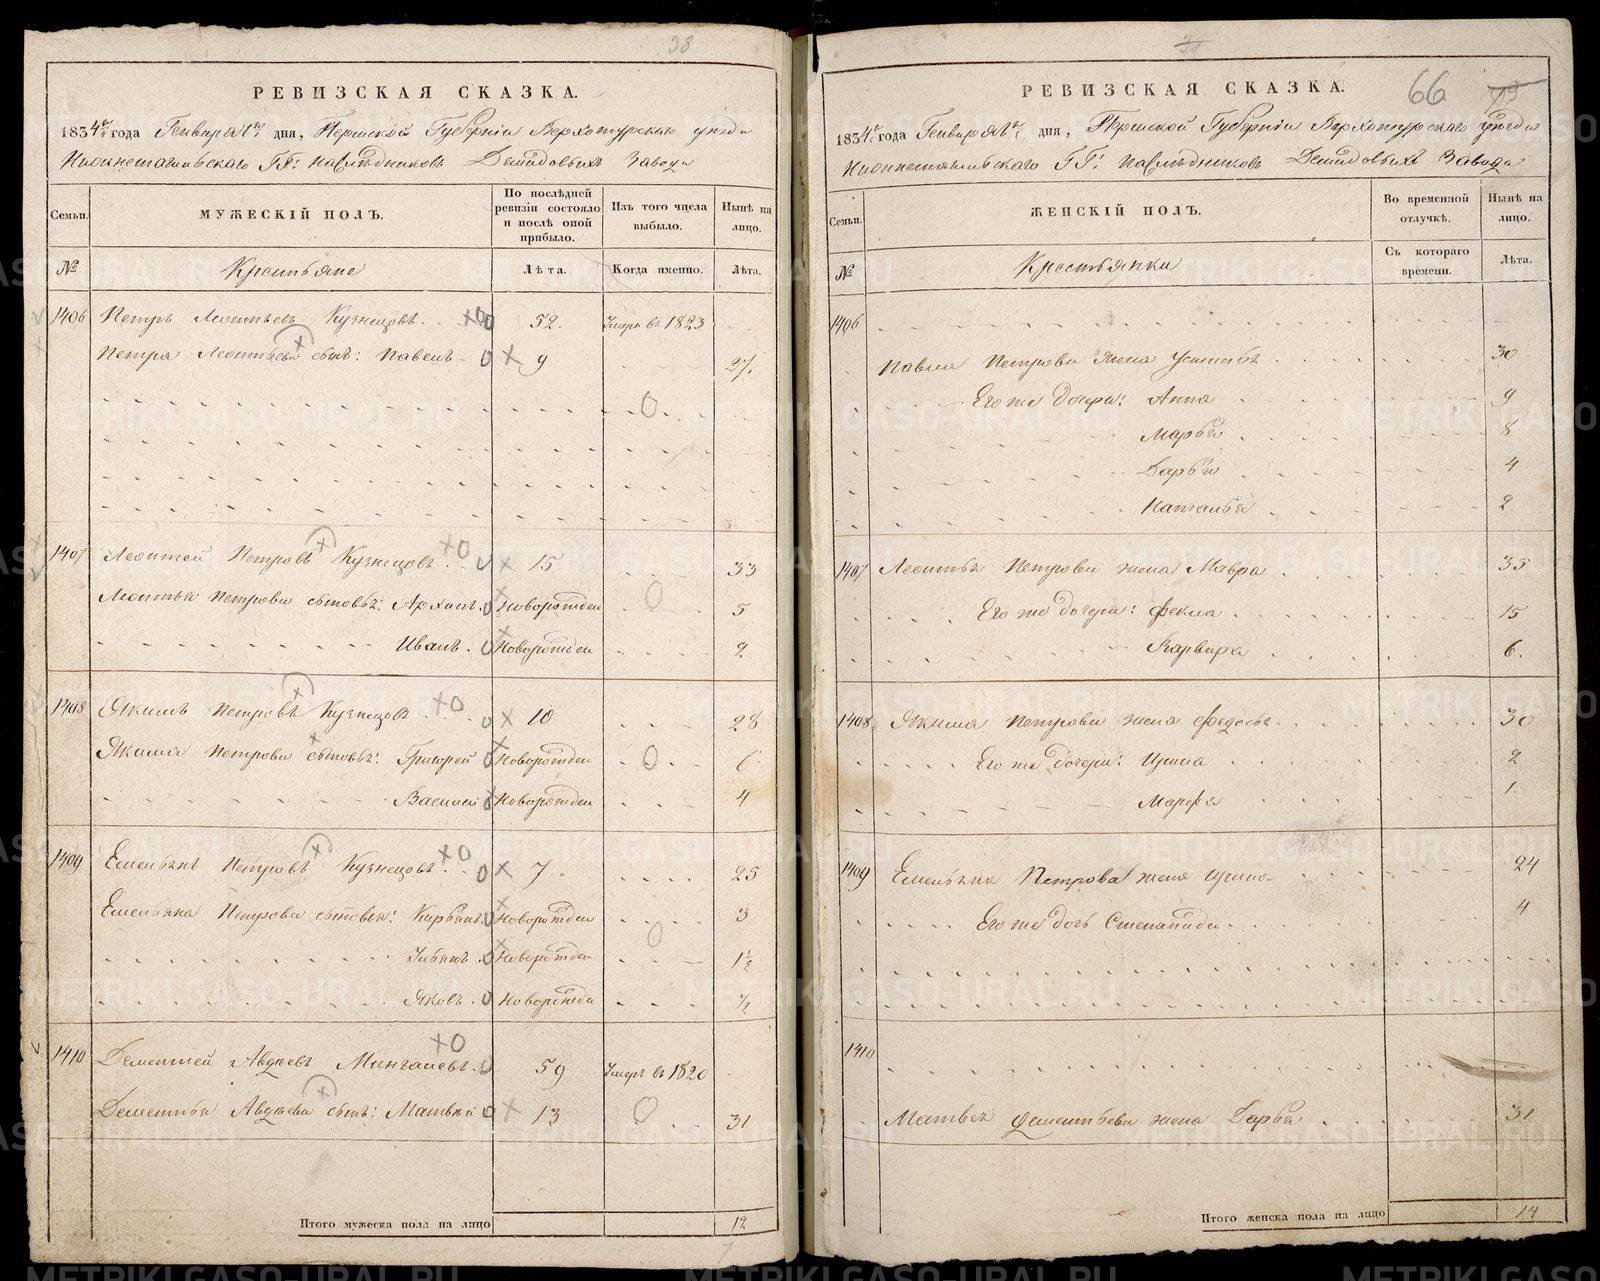 38
РЕВИЗСКАЯ СКАЗКА.
1834го года Генваря 1го дня, Пермской Губернiи Верхотурскаго уезда
Нижнетагильскаго ГГ: Наследниковъ Демидовыхъ Завода
Семьи.
МУЖЕСКІЙ ПОЛЪ.
По послѣдней ревизіи состояло и послѣ оной прибыло.
Изъ того числа выбыло.
Нынѣ на лицо.
№
Крестьяне
Лѣта.
Когда именно.
Лѣта.
1406 Петръ Леонтьевъ Кузнецовъ 52. Умеръ въ 1823
Петра Леонтьева сынъ: Павелъ 9 27.
1407 Леонтей Петровъ Кузнецовъ 15 33
Леонтья Петрова сыновья: Архипъ Новорожден 5
Иванъ. Новорожден 2
1408 Якимъ Петровъ Кузнецовъ 10 28
Якима Петрова сыновья: Григорей Новорожден 6
Василей Новорожден 4
1409 Емельянъ Петровъ Кузнецовъ 7 25
Емельяна Петрова сыновья: Новорожден 3
Новорожден 1½
Яковъ Новорожден ½
1410 Дементей Авдеевъ 59 Умеръ въ 1820
Дементья Авдеева сынъ: Матвей 13 31
Итого мужеска пола на лицо 12
38
66
РЕВИЗСКАЯ СКАЗКА.
1834го года Генваря 1го дня, Пермской Губернiи Верхотурскаго уезда
Нижнетагильскаго ГГ: Наследниковъ Демидовыхъ Завода
Семьи.
ЖЕНСКІЙ ПОЛЪ.
Во временной отлучкѣ.
Нынѣ на лицо.
№
Крестьянки
Съ котораго времени.
Лѣта.
1406
Павла Петрова жена Устинья 30
Его же дочери: Анна 9
Марья 8
Дарья 4
Наталья 2
1407 Леонтья Петрова жена Мавра 35
Его же дочери: Фекла 15
Варвара 6.
1408 Якима Петрова жена Федосья 30
Его же дочери: Ирина 2
Марфа 1
1409 Емельяна Петрова жена Ирина 24
Его же дочь Степанида 4
1410
Матвея Дементьева жена Дарья 31
Итого женска пола на лицо 14
METRIKI.GASO-URAL.RU